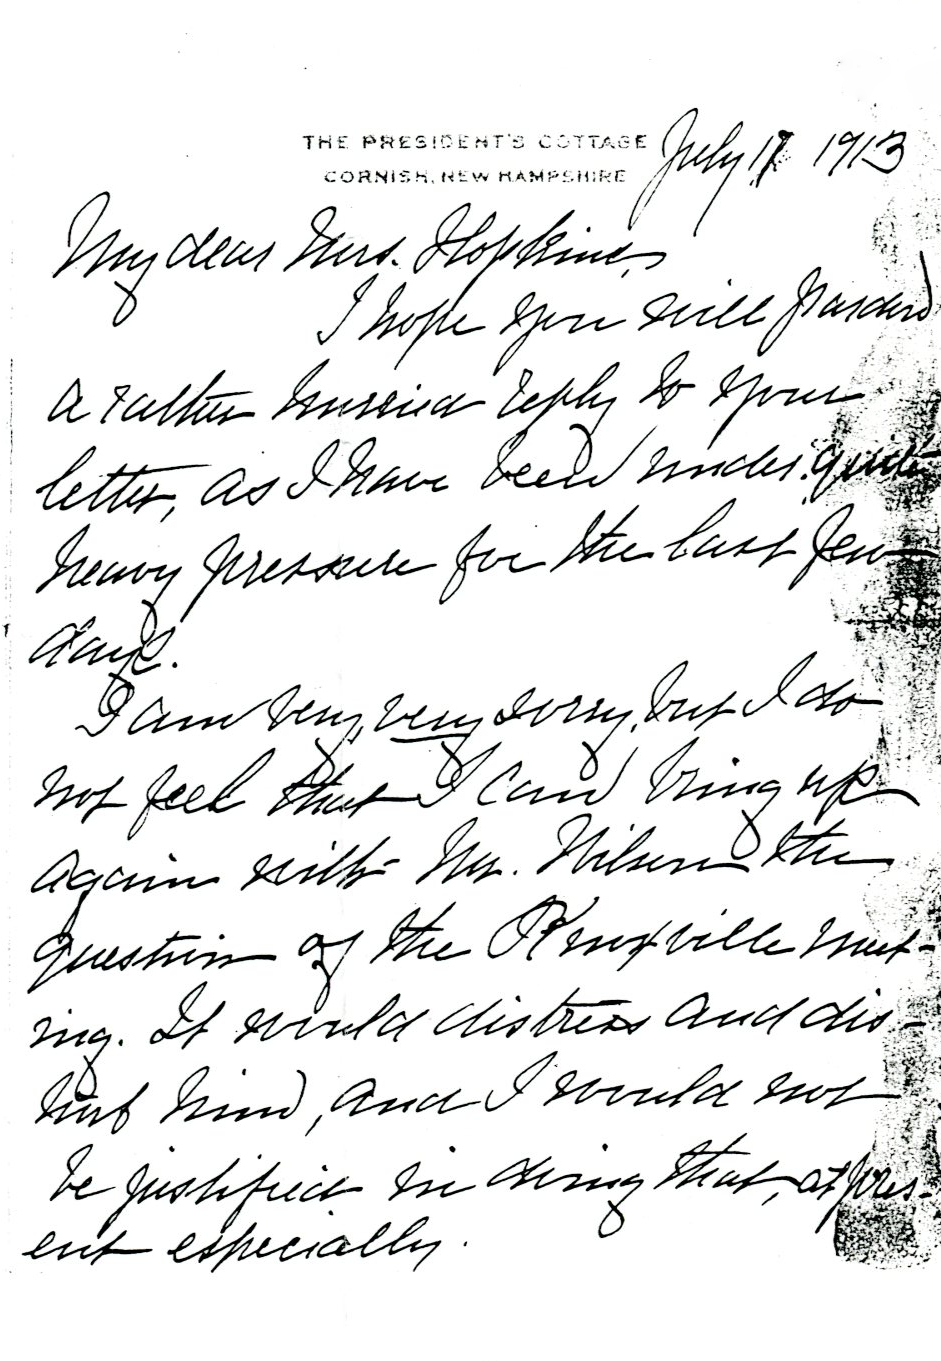 THE PRESIDENT'S COTTAGE
CORNISH, NEW HAMPSHIRE
July 17 1913
My dear Mrs. Hopkins,
I hope you will pardon
a rather hurried reply to your
letter, as I have been under quite
heavy pressure for the last few
days.
I am very, very sorry, but I do
not feel that I can bring up
again with Mr. Wilson the
question of the Knoxville meet-
ing. It would distress and dis-
turb him, and I would not
be justified in doing that, at pres-
ent especially.